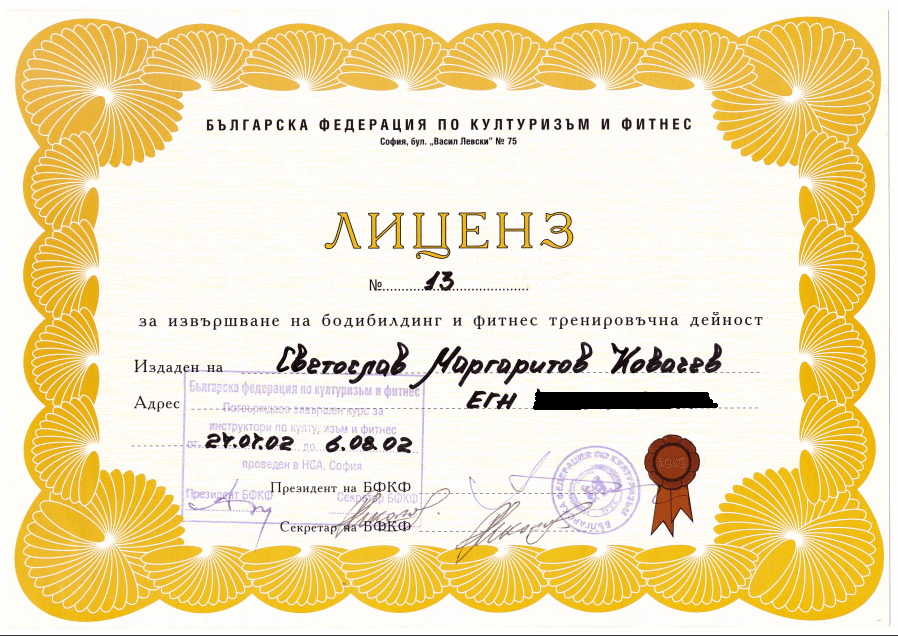 БЪЛГАРСКА ФЕДЕРАЦИЯ ПО КУЛТУРИЗЪМ И ФИТНЕС
София, бул. „Васил Левски" № 75
ЛИЦЕНЗ
№ 13
за извършване на бодибилдинг и фитнес тренировъчна дейност
Издаден на Светослав Маргаритов Ковачев
Българска федерация по културизъм и фитнес
Адрес ЕГН
Потвърждава завършен курс за
инструктори по културизъм и фитнес
от 27.07.02 до 6.08.02
проведен в НСА, София
Президент на БФКФ
Президент БФКФ Секретар БФКФ
Секретар на БФКФ
БЪЛГАРСКА ФЕДЕРАЦИЯ ПО КУЛТУРИЗЪМ